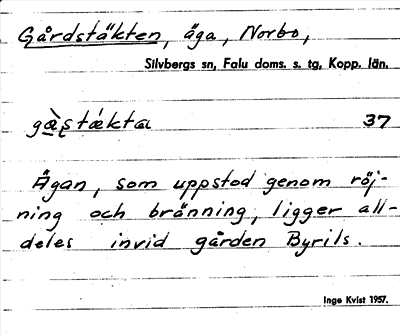 Gårdstäkten, äga, Norbo,
Silvbergs sn, Falu doms. s. tg, Kopp. län.
gæ̀ʂtǽkta 37
Ägan, som uppstod genom röj-
ning och bränning, ligger all-
deles invid gården Byrils.
Inge Kvist 1957.